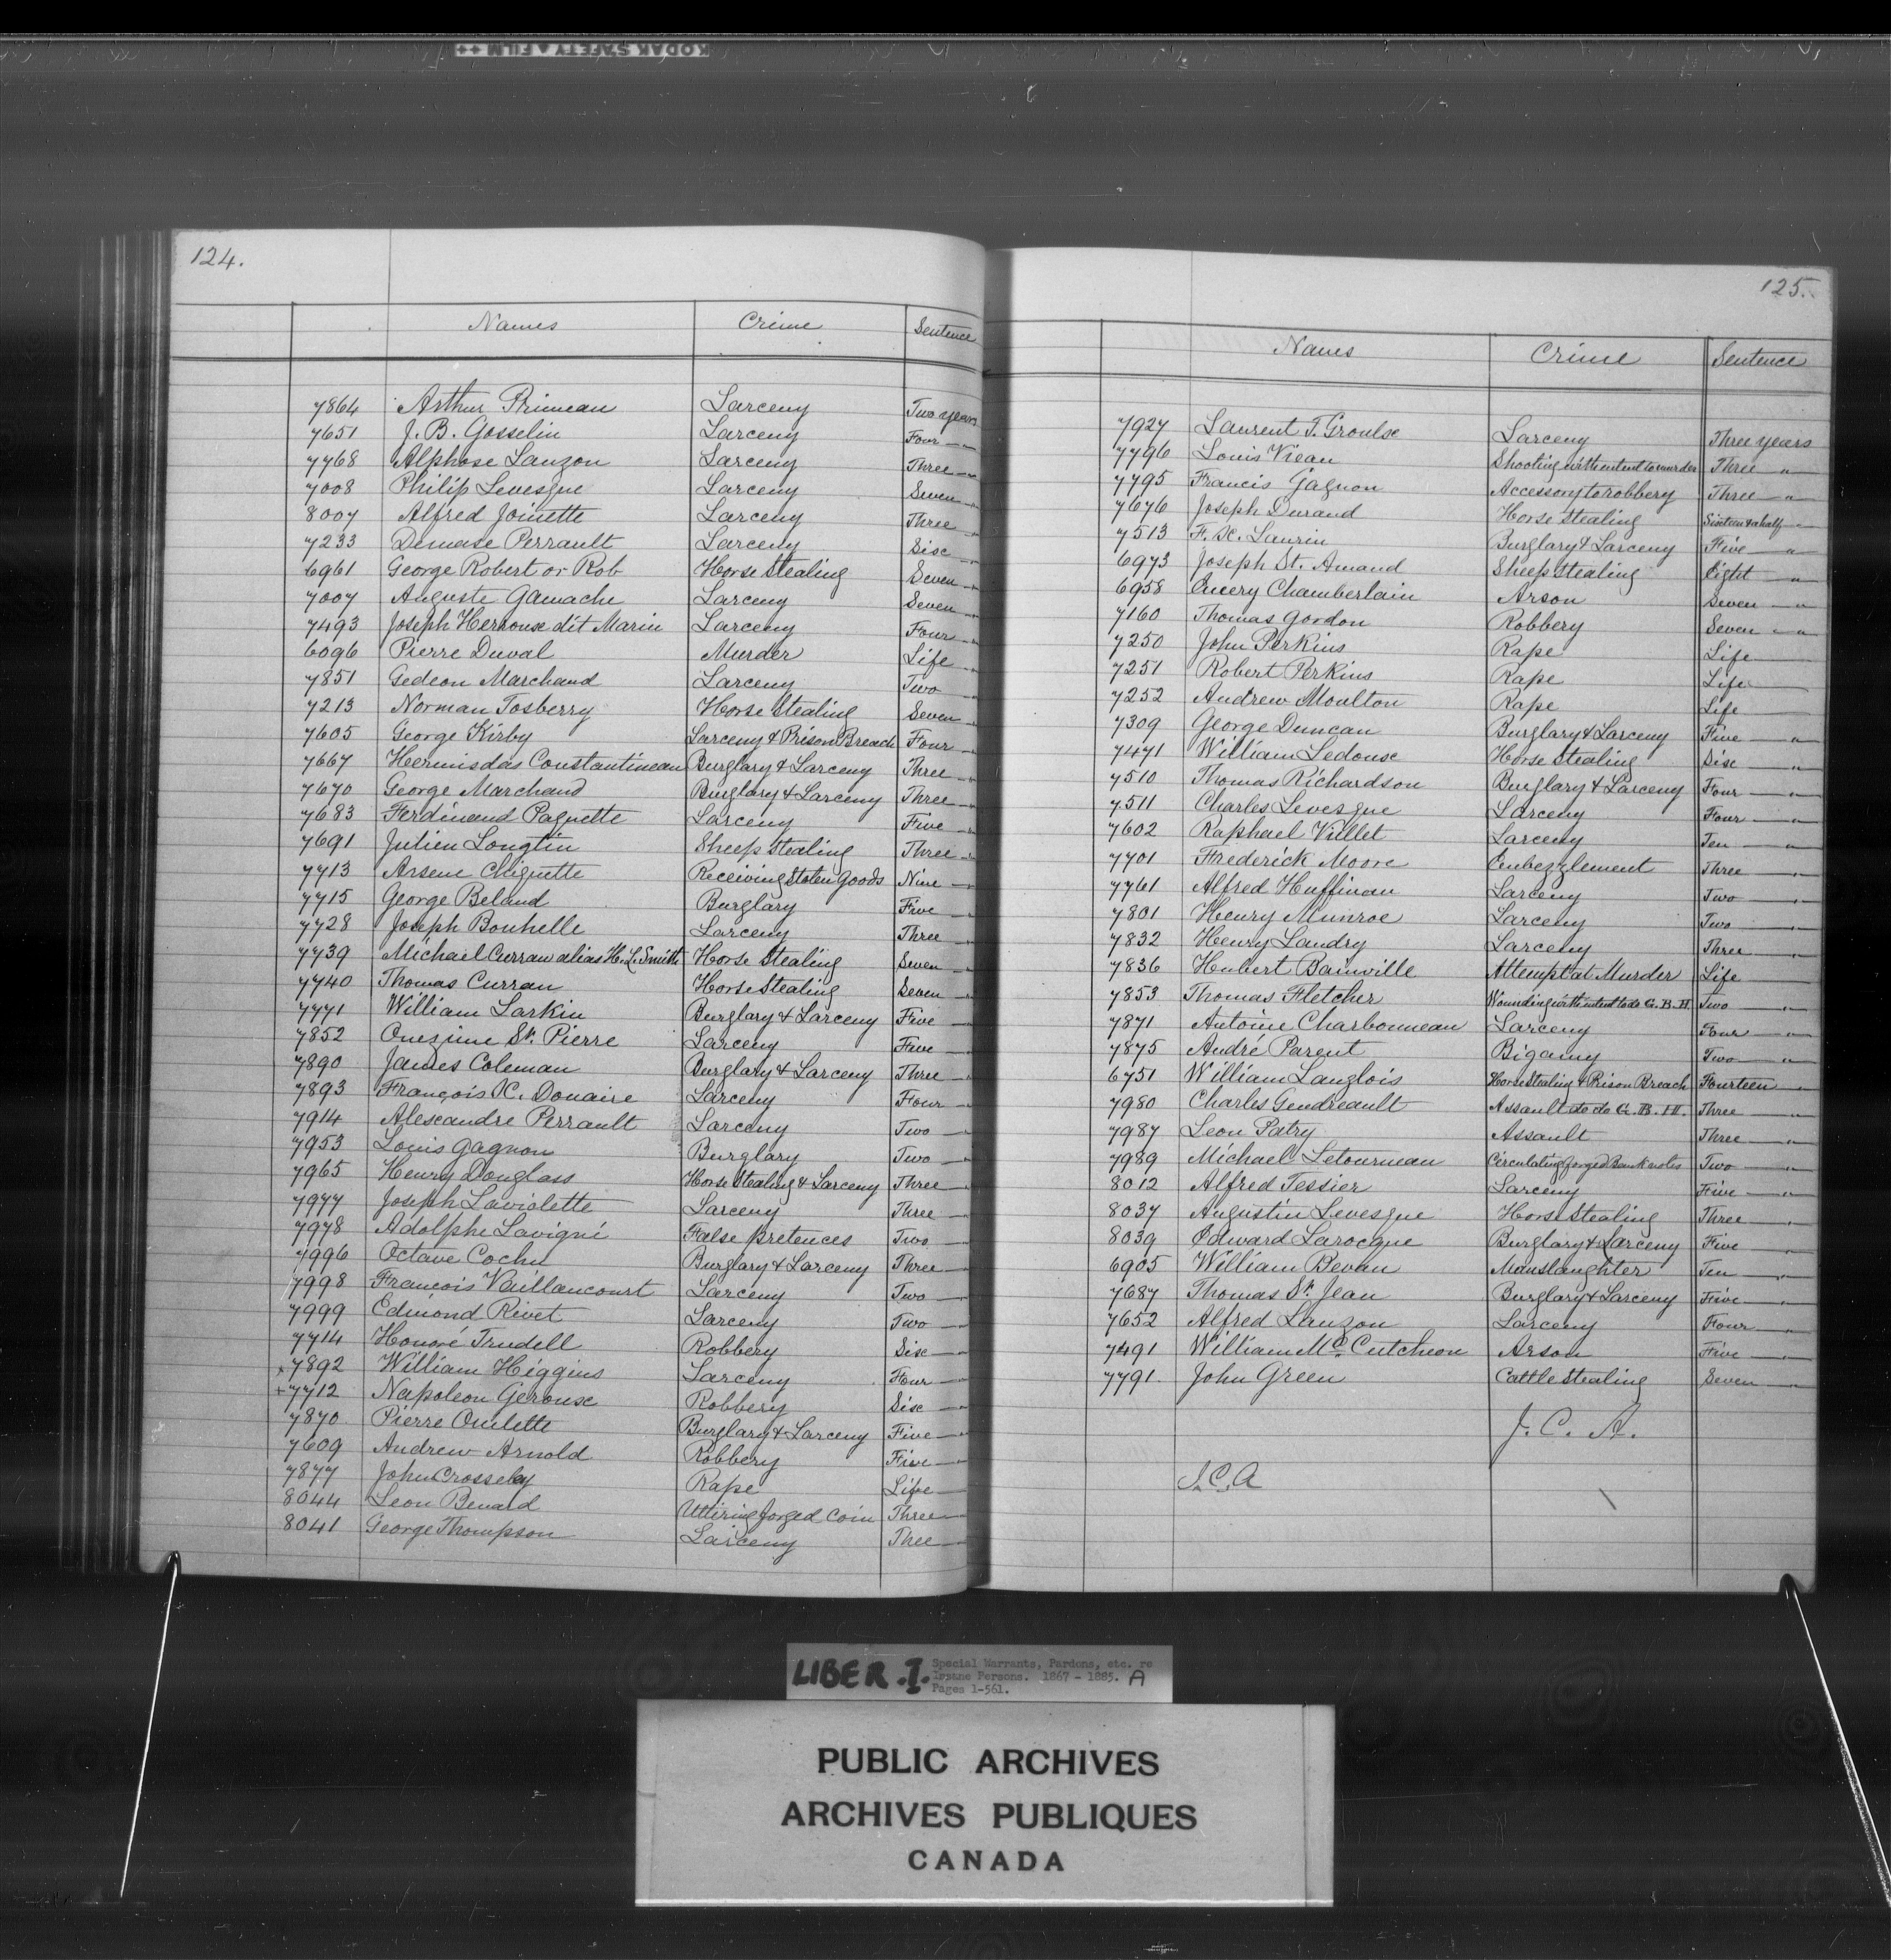 KODAK SAFETY FILM ++
124.
Names Crime Sentence
7864 Arthur Primeau Larceny Two years
7651 J. B. Gosselin Larceny Four "
7768 Alphose Lauzon Larceny Three "
7008 Philip Levesque Larceny Seven "
8007 Alfred Joinette Larceny Three "
7233 Demase Perrault Larceny Six "
6961 George Robert or Rob Horse Stealing Seven "
7007 Auguste Gamache Larceny Seven "
7493 Joseph Heroux dit Marin Larceny Four "
6096 Pierre Duval Murder Life
7851 Gedeon Marchand Larceny Two "
7213 Norman Tosberry Horse Stealing Seven "
7605 George Kirby Larceny & Prison Breach Four "
7667 Hermisdas Constantineau Burglary & Larceny Three "
7670 George Marchand Burglary & Larceny Three "
7683 Ferdinand Paquette Larceny Five "
7691 Julien Longtin Sheep Stealing Three "
7713 Arsene Cliquette Receiving Stolen Goods Nine "
7715 George Beland Burglary Five "
7728 Joseph Bouhelle Larceny Three "
7739 Michael Curran alias H. L. Smith Horse Stealing Seven "
7740 Thomas Curran Horse Stealing Seven "
7771 William Larkin Burglary & Larceny Five "
7852 Onezime St. Pierre Larceny Five "
7890 James Coleman Burglary & Larceny Three "
7893 François X. Douaire Larceny Four "
7914 Alexandre Perrault Larceny Two "
7953 Louis Gagnon Burglary Two "
7965 Henry Douglass Horse Stealing & Larceny Three "
7977 Joseph Laviolette Larceny Three "
7978 Adolphe Lavigné False Pretences Two "
7996 Octave Cochu Burglary & Larceny Three "
7998 François Vaillancourt Larceny Two "
7999 Edmond Rivet Larceny Two "
7714 Honoré Trudell Robbery Six "
x 7892 William Higgins Larceny Four "
+ 7712 Napoleon Geroux Robbery Six "
7870 Pierre Oulette Burglary & Larceny Five "
7609 Andrew Arnold Robbery Five "
7877 John Crosseley Rape Life
8044 Leon Benard Uttering forged Coin Three "
8041 George Thompson Larceny Thee "
125.
Names Crime Sentence
7927 Laurent T. Groulx Larceny Three years
7796 Louis Vieau Shooting with intent to murder Three "
7795 Francis Gagnon Accessory to robbery Three "
7676 Joseph Durand Horse Stealing Sixteen & a half "
7513 F. X. Laurin Burglary & Larceny Five "
6973 Joseph St. Amand Sheep Stealing Eight "
6958 Emery Chamberlain Arson Seven "
7160 Thomas Gordon Robbery Seven "
7250 John Perkins Rape Life
7251 Robert Perkins Rape Life
7252 Andrew Moulton Rape Life
7309 George Duncan Burglary & Larceny Five "
7471 William Ledoux Horse Stealing Six "
7510 Thomas Richardson Burglary & Larceny Four "
7511 Charles Levesque Larceny Four "
7602 Raphael Viillet Larceny Ten "
7701 Frederick Moore Embezzlement Three "
7761 Alfred Huffman Larceny Two "
7801 Henry Munroe Larceny Two "
7832 Henry Landry Larceny Three "
7836 Hubert Bainville Attempt at Murder Life
7853 Thomas Fletcher Wounding with intent to do G. B. H. Two "
7871 Antoine Charbonneau Larceny Four "
7875 André Parent Bigamy Two "
6751 William Langlois Horse Stealing & Prison Breach Fourteen "
7980 Charles Gendreault Assault to do G. B. H. Three "
7987 Leon Patry Assault Three "
7989 Michael Letourneau Circulating forged Bank notes Two "
8012 Alfred Tessier Larceny Five "
8037 Augustin Levesque Horse Stealing Three "
8039 Edward Larocque Burglary & Larceny Five "
6905 William Bevan Manslaughter Ten "
7687 Thomas St. Jean Burglary & Larceny Five "
7652 Alfred Lauzon Larceny Four "
7491 William Mc Cutcheon Arson Five "
7791 John Green Cattle Stealing Seven "
J. C. A.
J. C. A
LIBER . I . A
Special Warrants, Pardons, etc. re
Insane Persons. 1867 - 1885.
Pages 1-561.
PUBLIC ARCHIVES
ARCHIVES PUBLIQUES
CANADA